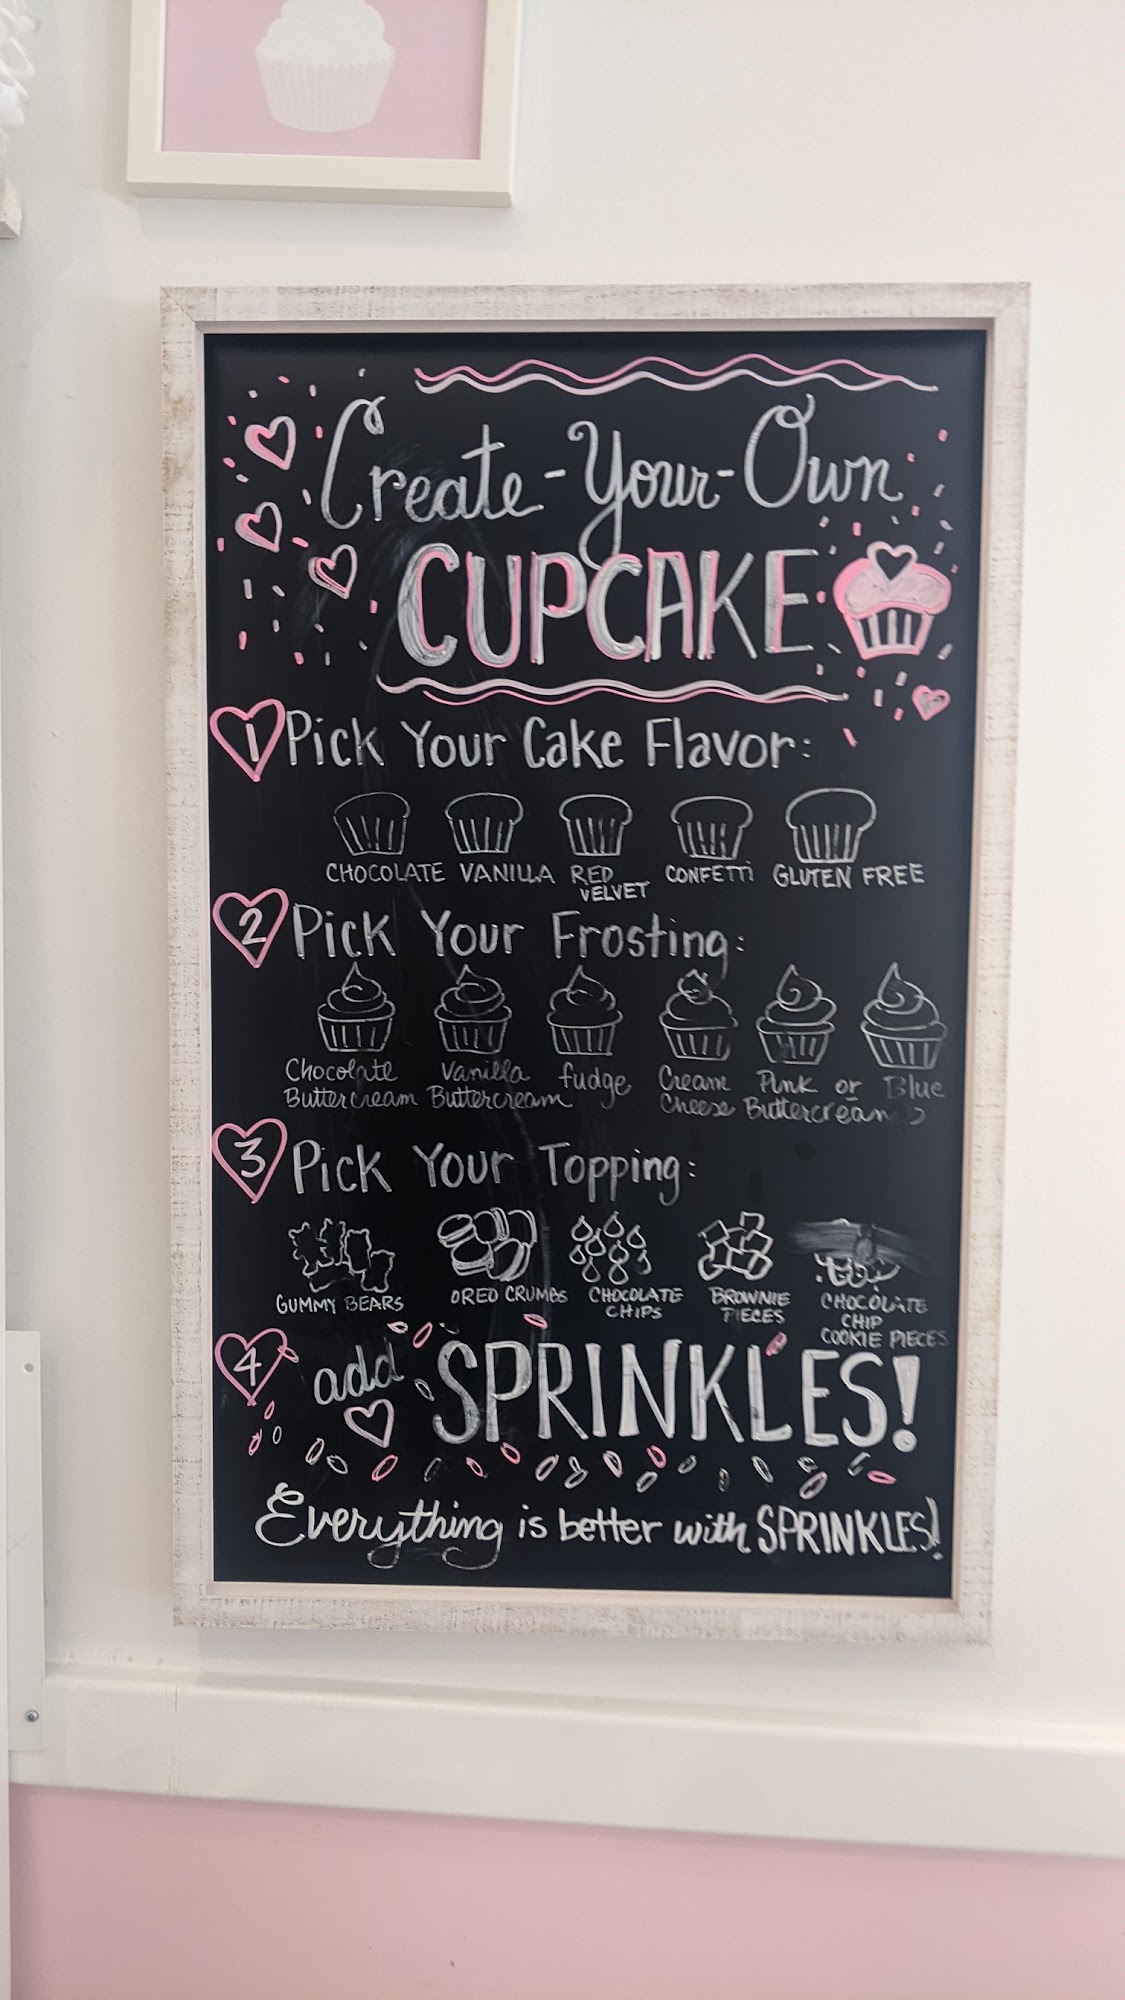 Create-Your-Own
CUPCAKE
1 Pick Your Cake Flavor:
CHOCOLATE VANILLA RED VELVET CONFETTI GLUTEN FREE
2 Pick Your Frosting:
Chocolate Buttercream Vanilla Buttercream fudge Cream Cheese Pink or Blue Buttercream
3 Pick Your Topping:
GUMMY BEARS OREO CRUMBS CHOCOLATE CHIPS BROWNIE PIECES CHOCOLATE CHIP COOKIE PIECES
4 add SPRINKLES!
Everything is better with SPRINKLES!